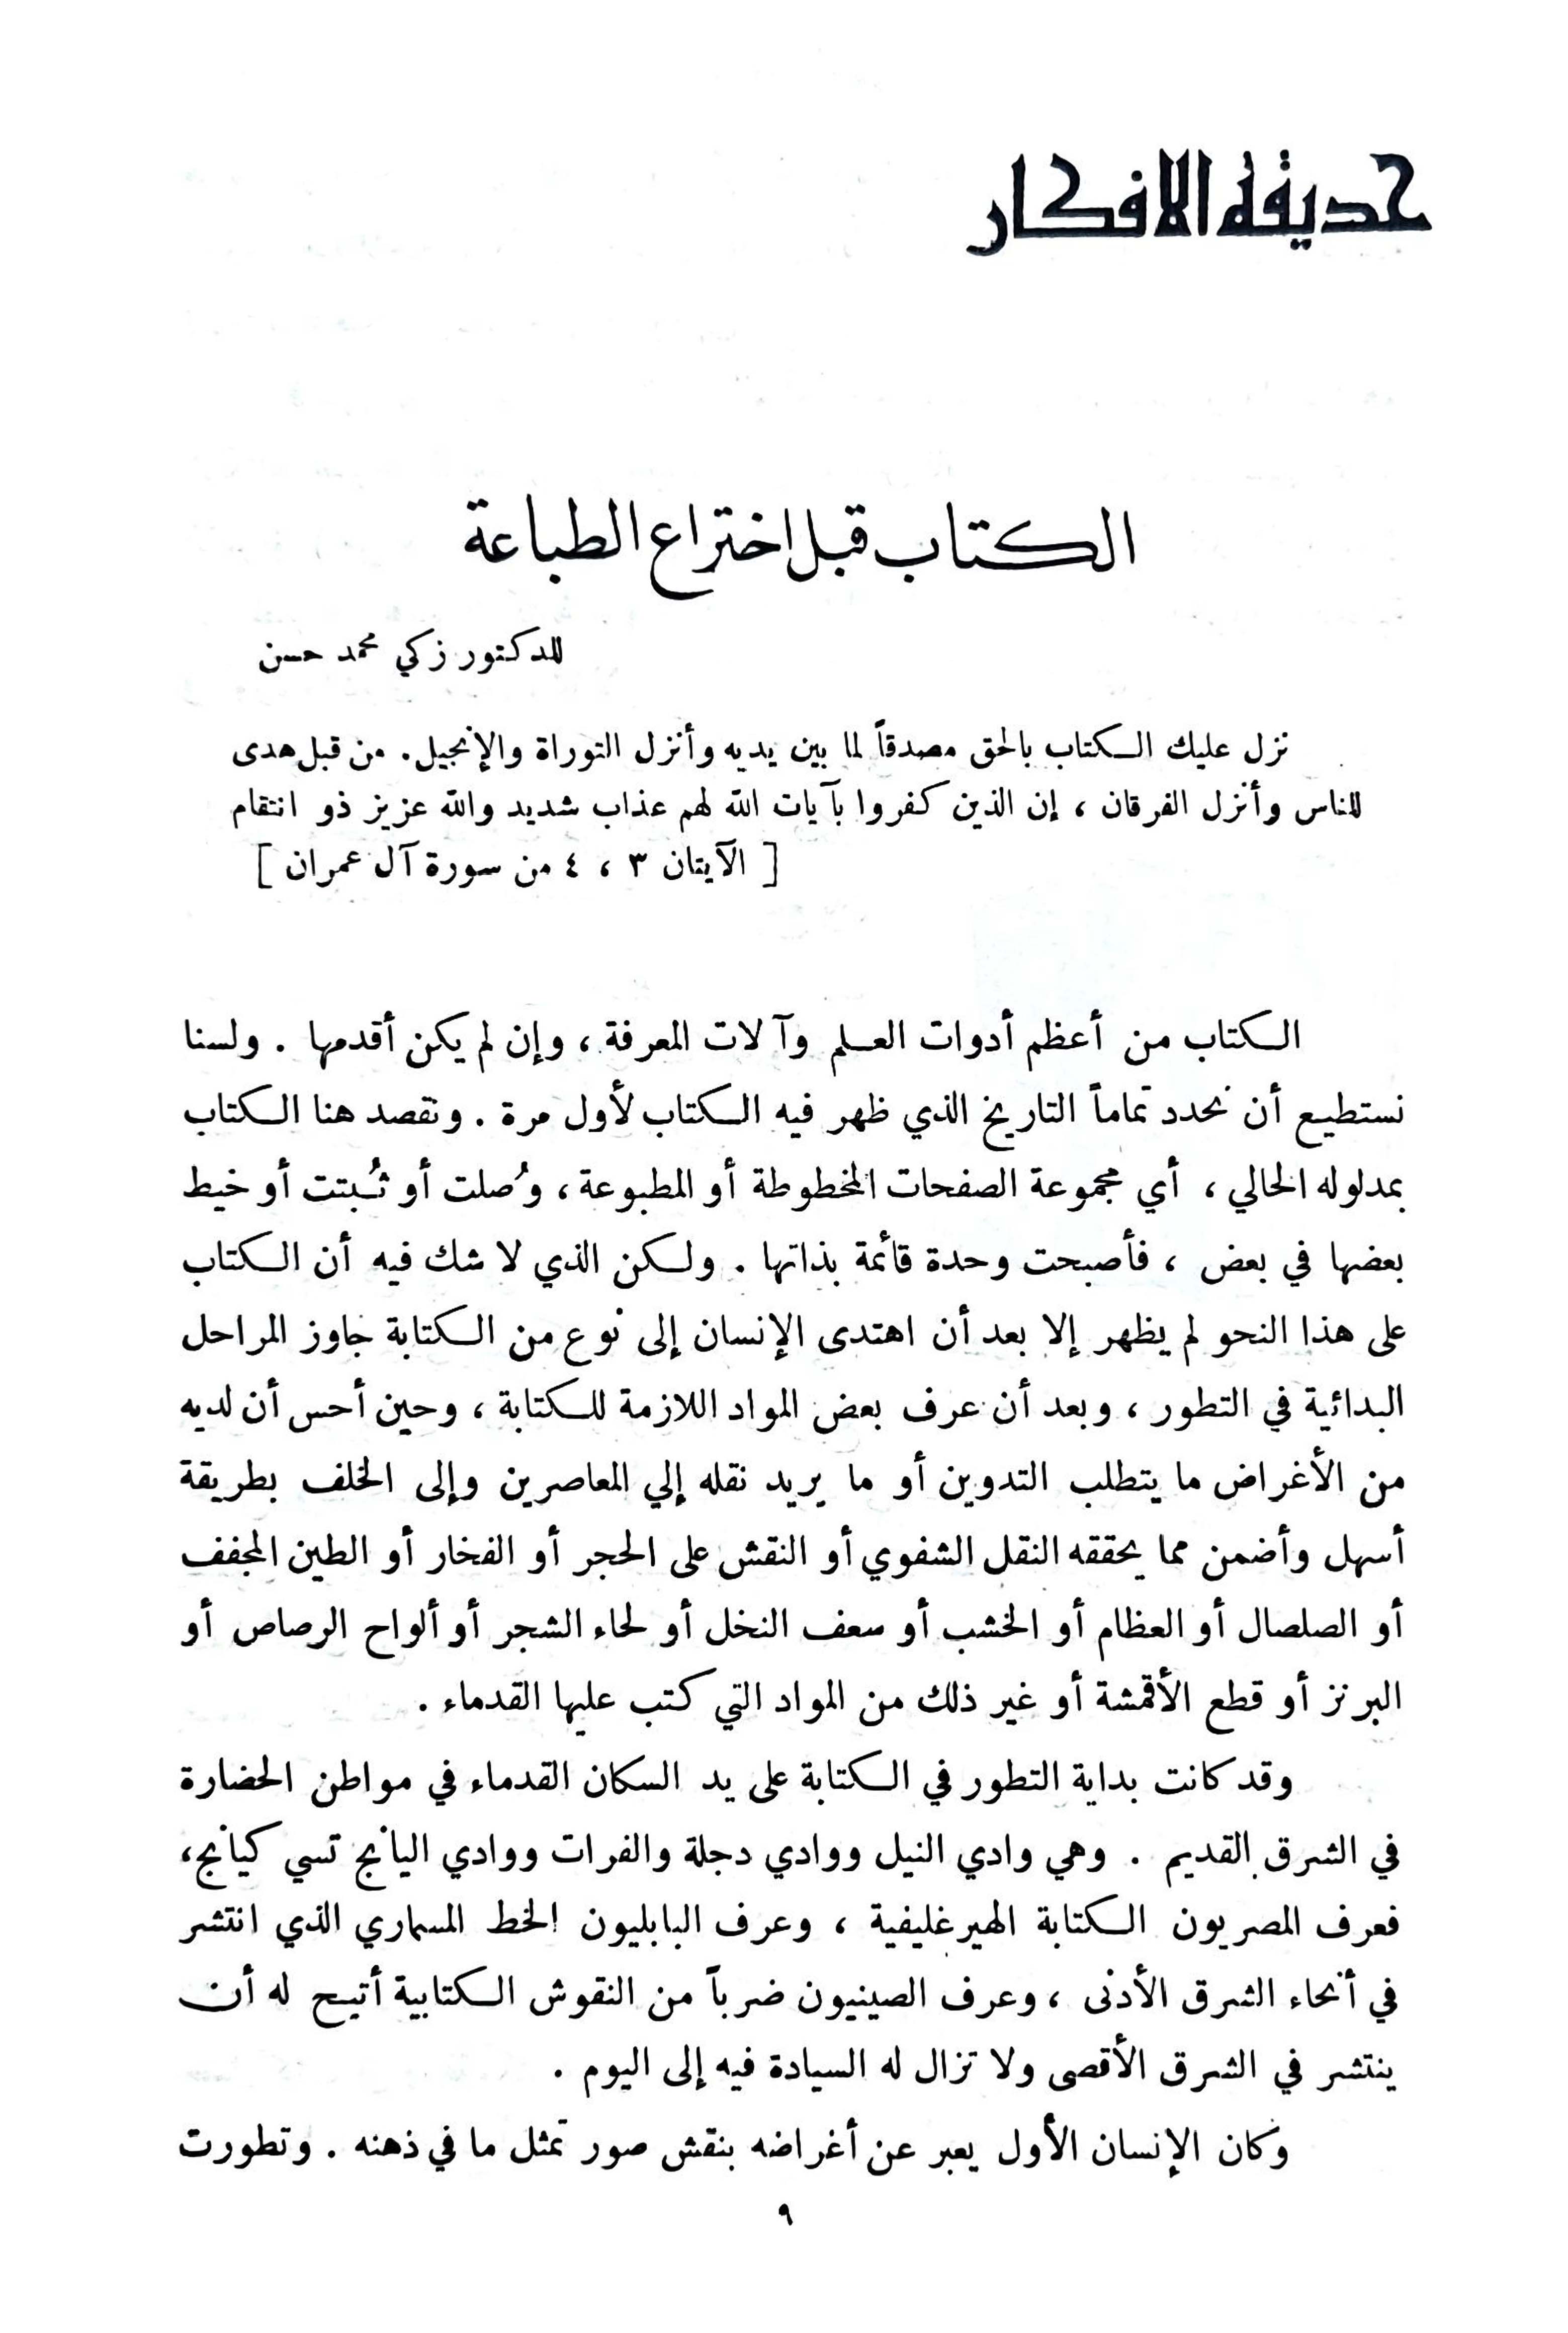 حديقة الافكار
الكتاب قبل اختراع الطباعة
للدكتور زكي محمد حسن
نزل عليك الكتاب بالحق مصدقاً لما بين يديه وأنزل التوراة والإنجيل. من قبل هدى
للناس وأنزل الفرقان ، إن الذين كفروا بآيات الله لهم عذاب شديد والله عزيز ذو انتقام
[ الآيتان ٣ ، ٤ من سورة آل عمران ]
الكتاب من أعظم أدوات العلم وآلات المعرفة ، وإن لم يكن أقدمها . ولسنا
نستطيع أن نحدد تماماً التاريخ الذي ظهر فيه الكتاب لأول مرة . ونقصد هنا الكتاب
بمدلوله الحالي ، أي مجموعة الصفحات المخطوطة أو المطبوعة ، وُصلت أو ثُبتت أو خيط
بعضها في بعض ، فأصبحت وحدة قائمة بذاتها . ولكن الذي لا شك فيه أن الكتاب
على هذا النحو لم يظهر إلا بعد أن اهتدى الإنسان إلى نوع من الكتابة جاوز المراحل
البدائية في التطور ، وبعد أن عرف بعض المواد اللازمة للكتابة ، وحين أحس أن لديه
من الأغراض ما يتطلب التدوين أو ما يريد نقله إلي المعاصرين وإلى الخلف بطريقة
أسهل وأضمن مما يحققه النقل الشفوي أو النقش على الحجر أو الفخار أو الطين المجفف
أو الصلصال أو العظام أو الخشب أو سعف النخل أو لحاء الشجر أو ألواح الرصاص أو
البرنز أو قطع الأقمشة أو غير ذلك من المواد التي كتب عليها القدماء .
وقد كانت بداية التطور في الكتابة على يد السكان القدماء في مواطن الحضارة
في الشرق القديم . وهي وادي النيل ووادي دجلة والفرات ووادي اليانج تسي كيانج،
فعرف المصريون الكتابة الهيرغليفية ، وعرف البابليون الخط المسماري الذي انتشر
في أنحاء الشرق الأدنى ، وعرف الصينيون ضرباً من النقوش الكتابية أتيح له أن
ينتشر في الشرق الأقصى ولا تزال له السيادة فيه إلى اليوم .
وكان الإنسان الأول يعبر عن أغراضه بنقش صور تمثل ما في ذهنه . وتطورت
٩